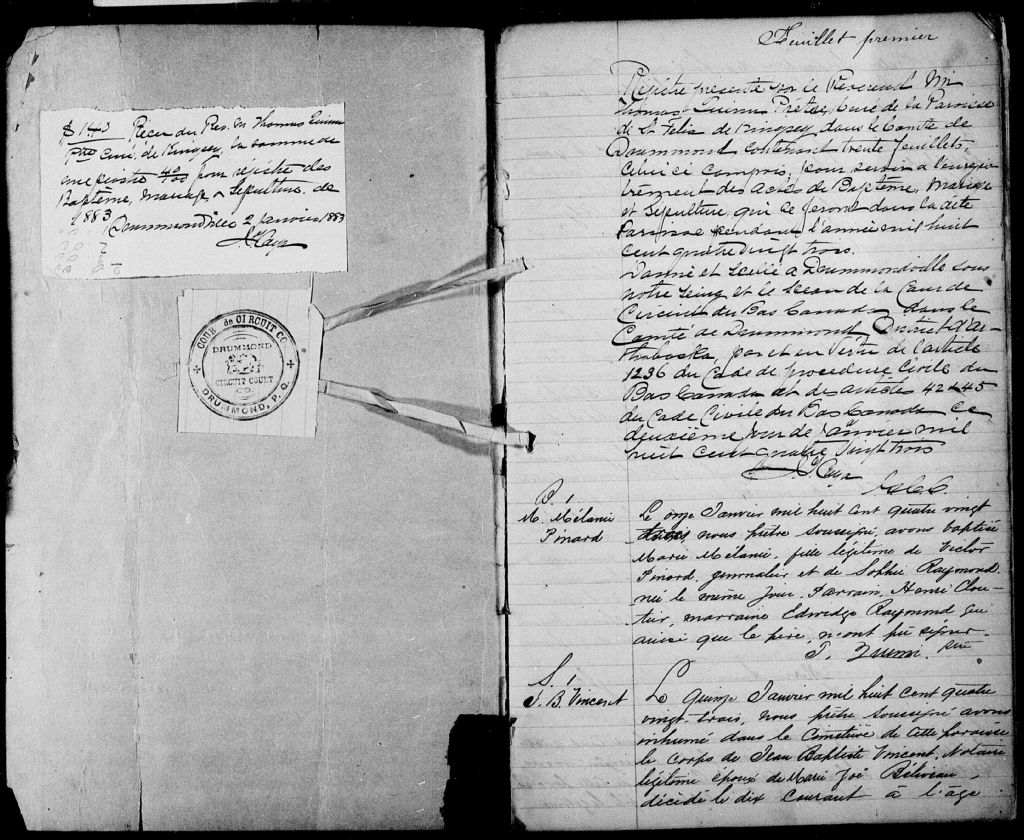 $ 140 Reçu du Rev. M Thomas Quinn
Ptre Curé de Kingsey, la somme de
une piastre 40/100 pour régistre des
Baptême, mariage, & Sépulture de
1883 Drummondville 2 Janvier 1883
COUR de CIRCUIT CO
DRUMMOND
CIRCUIT COURT
CO.
DRUMMOND, P. Q.
Feuillet premier
Régistre présenté par le Révérend Mr
Thomas Quinn Prêtre, Curé de la Paroisse
de St Félix de Kingsey, dans le Comté de
Drummond contenant trente feuillets,
celui ci compris, pour servir à l'enregis
trement des Actes de Baptême, Mariage
et Sépulture, qui se feront dans la dite
Paroisse pendant l'année mil huit
cent quatre vingt trois.
Donné et Scellé à Drummondville sous
notre seing et le Sceau de la Cour de
Circuit du Bas Canada, dans le
Comté de Drummond District d'Ar-
thabaska, par et en Vertu de l'article
1236 du Code de procédure Civile du
Bas Canada et des articles 42 & 45
du Code Civile du Bas Canada ce
deuxième jour de Janvier mil
huit cent quatre vingt trois
B. 1
M. Mélanie
Pinard
Le onze Janvier mil huit cent quatre vingt
trois nous prêtre soussigné avons baptisé
Marie Mélanie, fille légitime de Victor
Pinard, journalier et de Sophie Raymond
née le même jour. Parrain, Henri Clou-
tier, marraine Edwidge Raymond qui
aussi que le père, n'ont pu signer.
T. Quinn. ptre
S. 1
J. B. Vincent
Le quinze Janvier mil huit cent quatre
vingt-trois, nous prêtre soussigné avons
inhumé dans le Cimetière de cette paroisse
le corps de Jean Baptiste Vincent, Notaire
légitime époux de Marie Joe Béliveau,
décédé le dix courant à l'âge